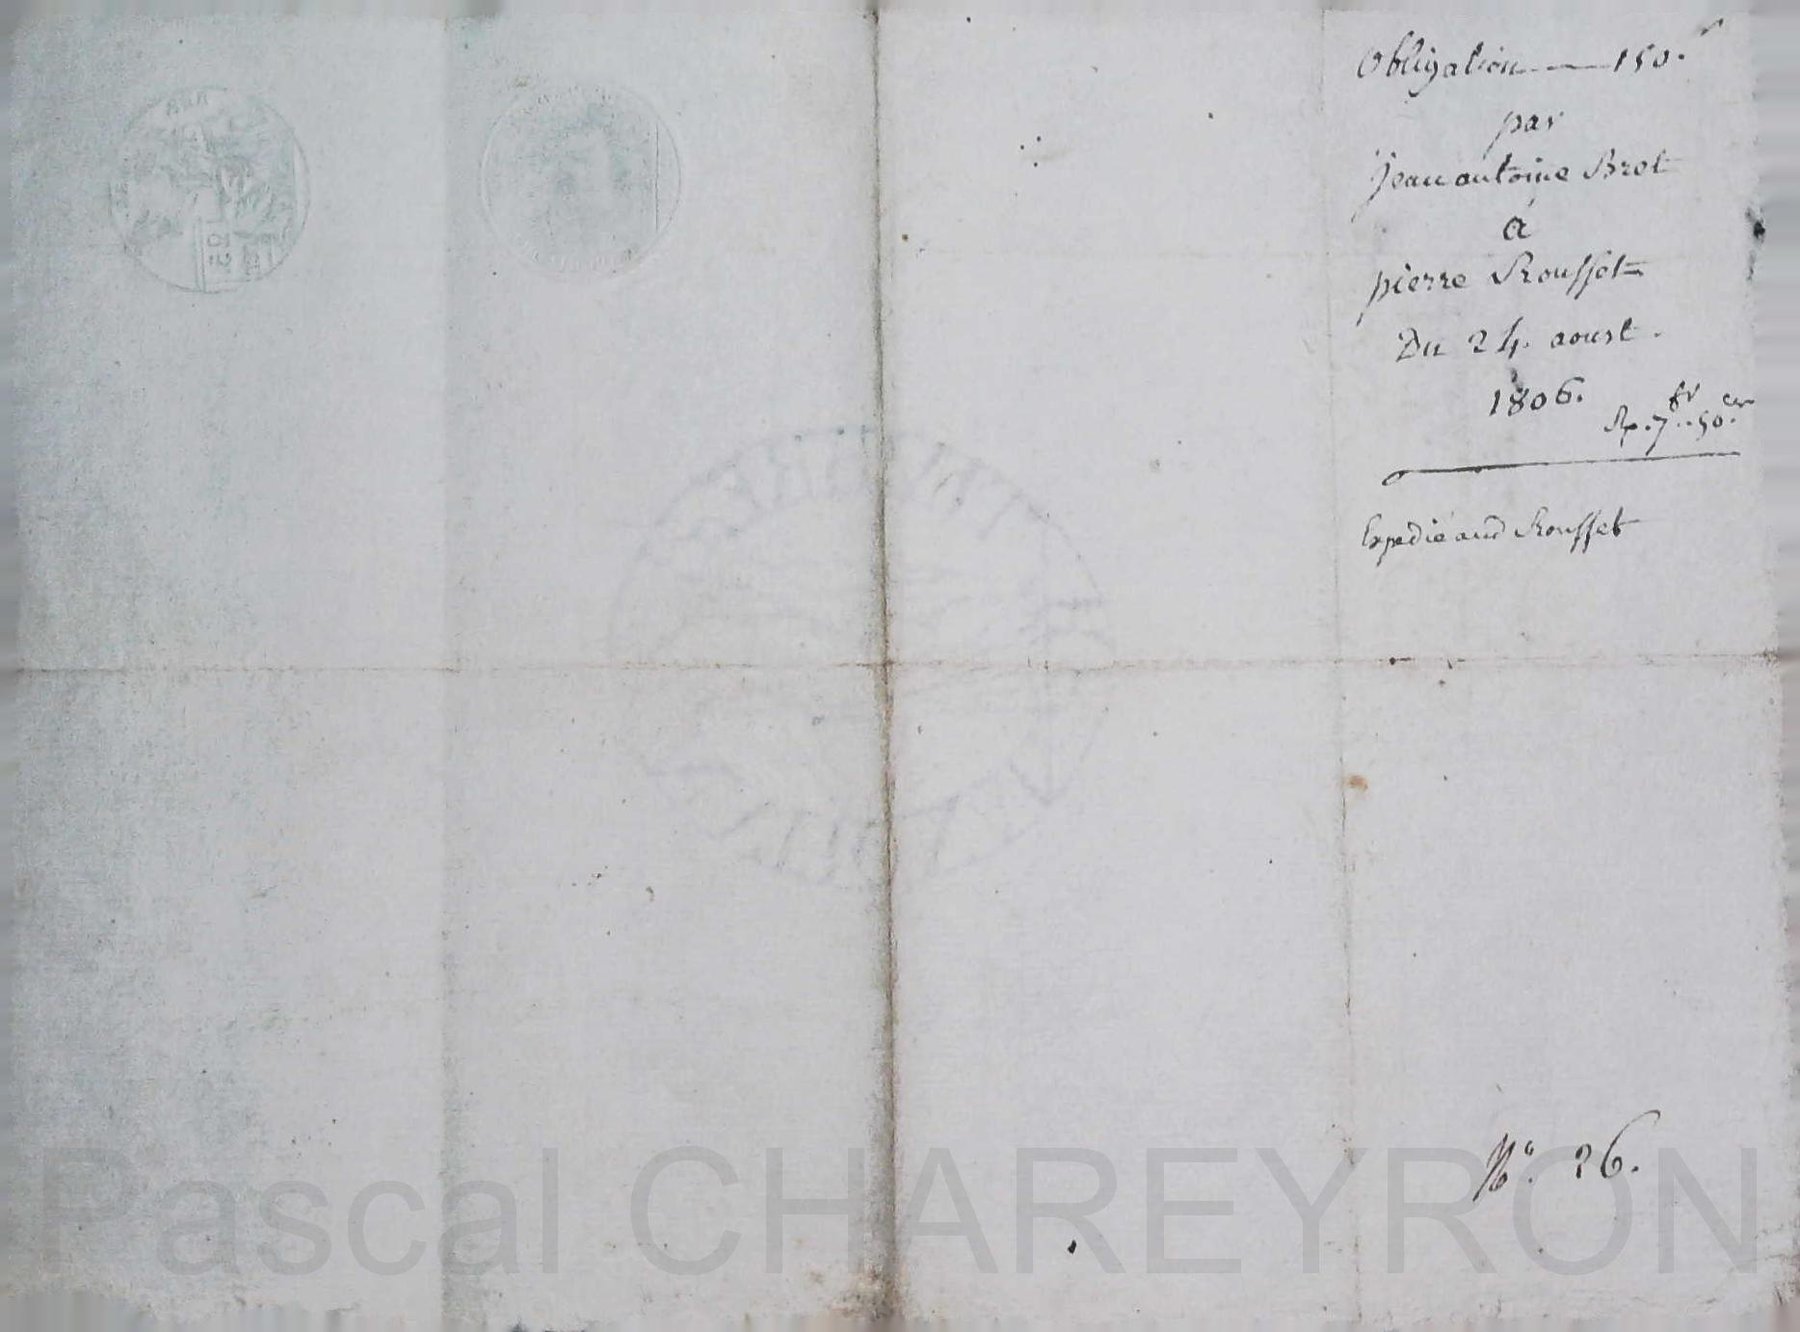 Obligation —— 150. f
par
Jean antoine Bret
à
pierre Rousset
Du 24. aoust.
1806.
Rp. 7 fr.. 50. cen
Expedié aud Rousset
N.º 26.
Pascal CHAREYRON